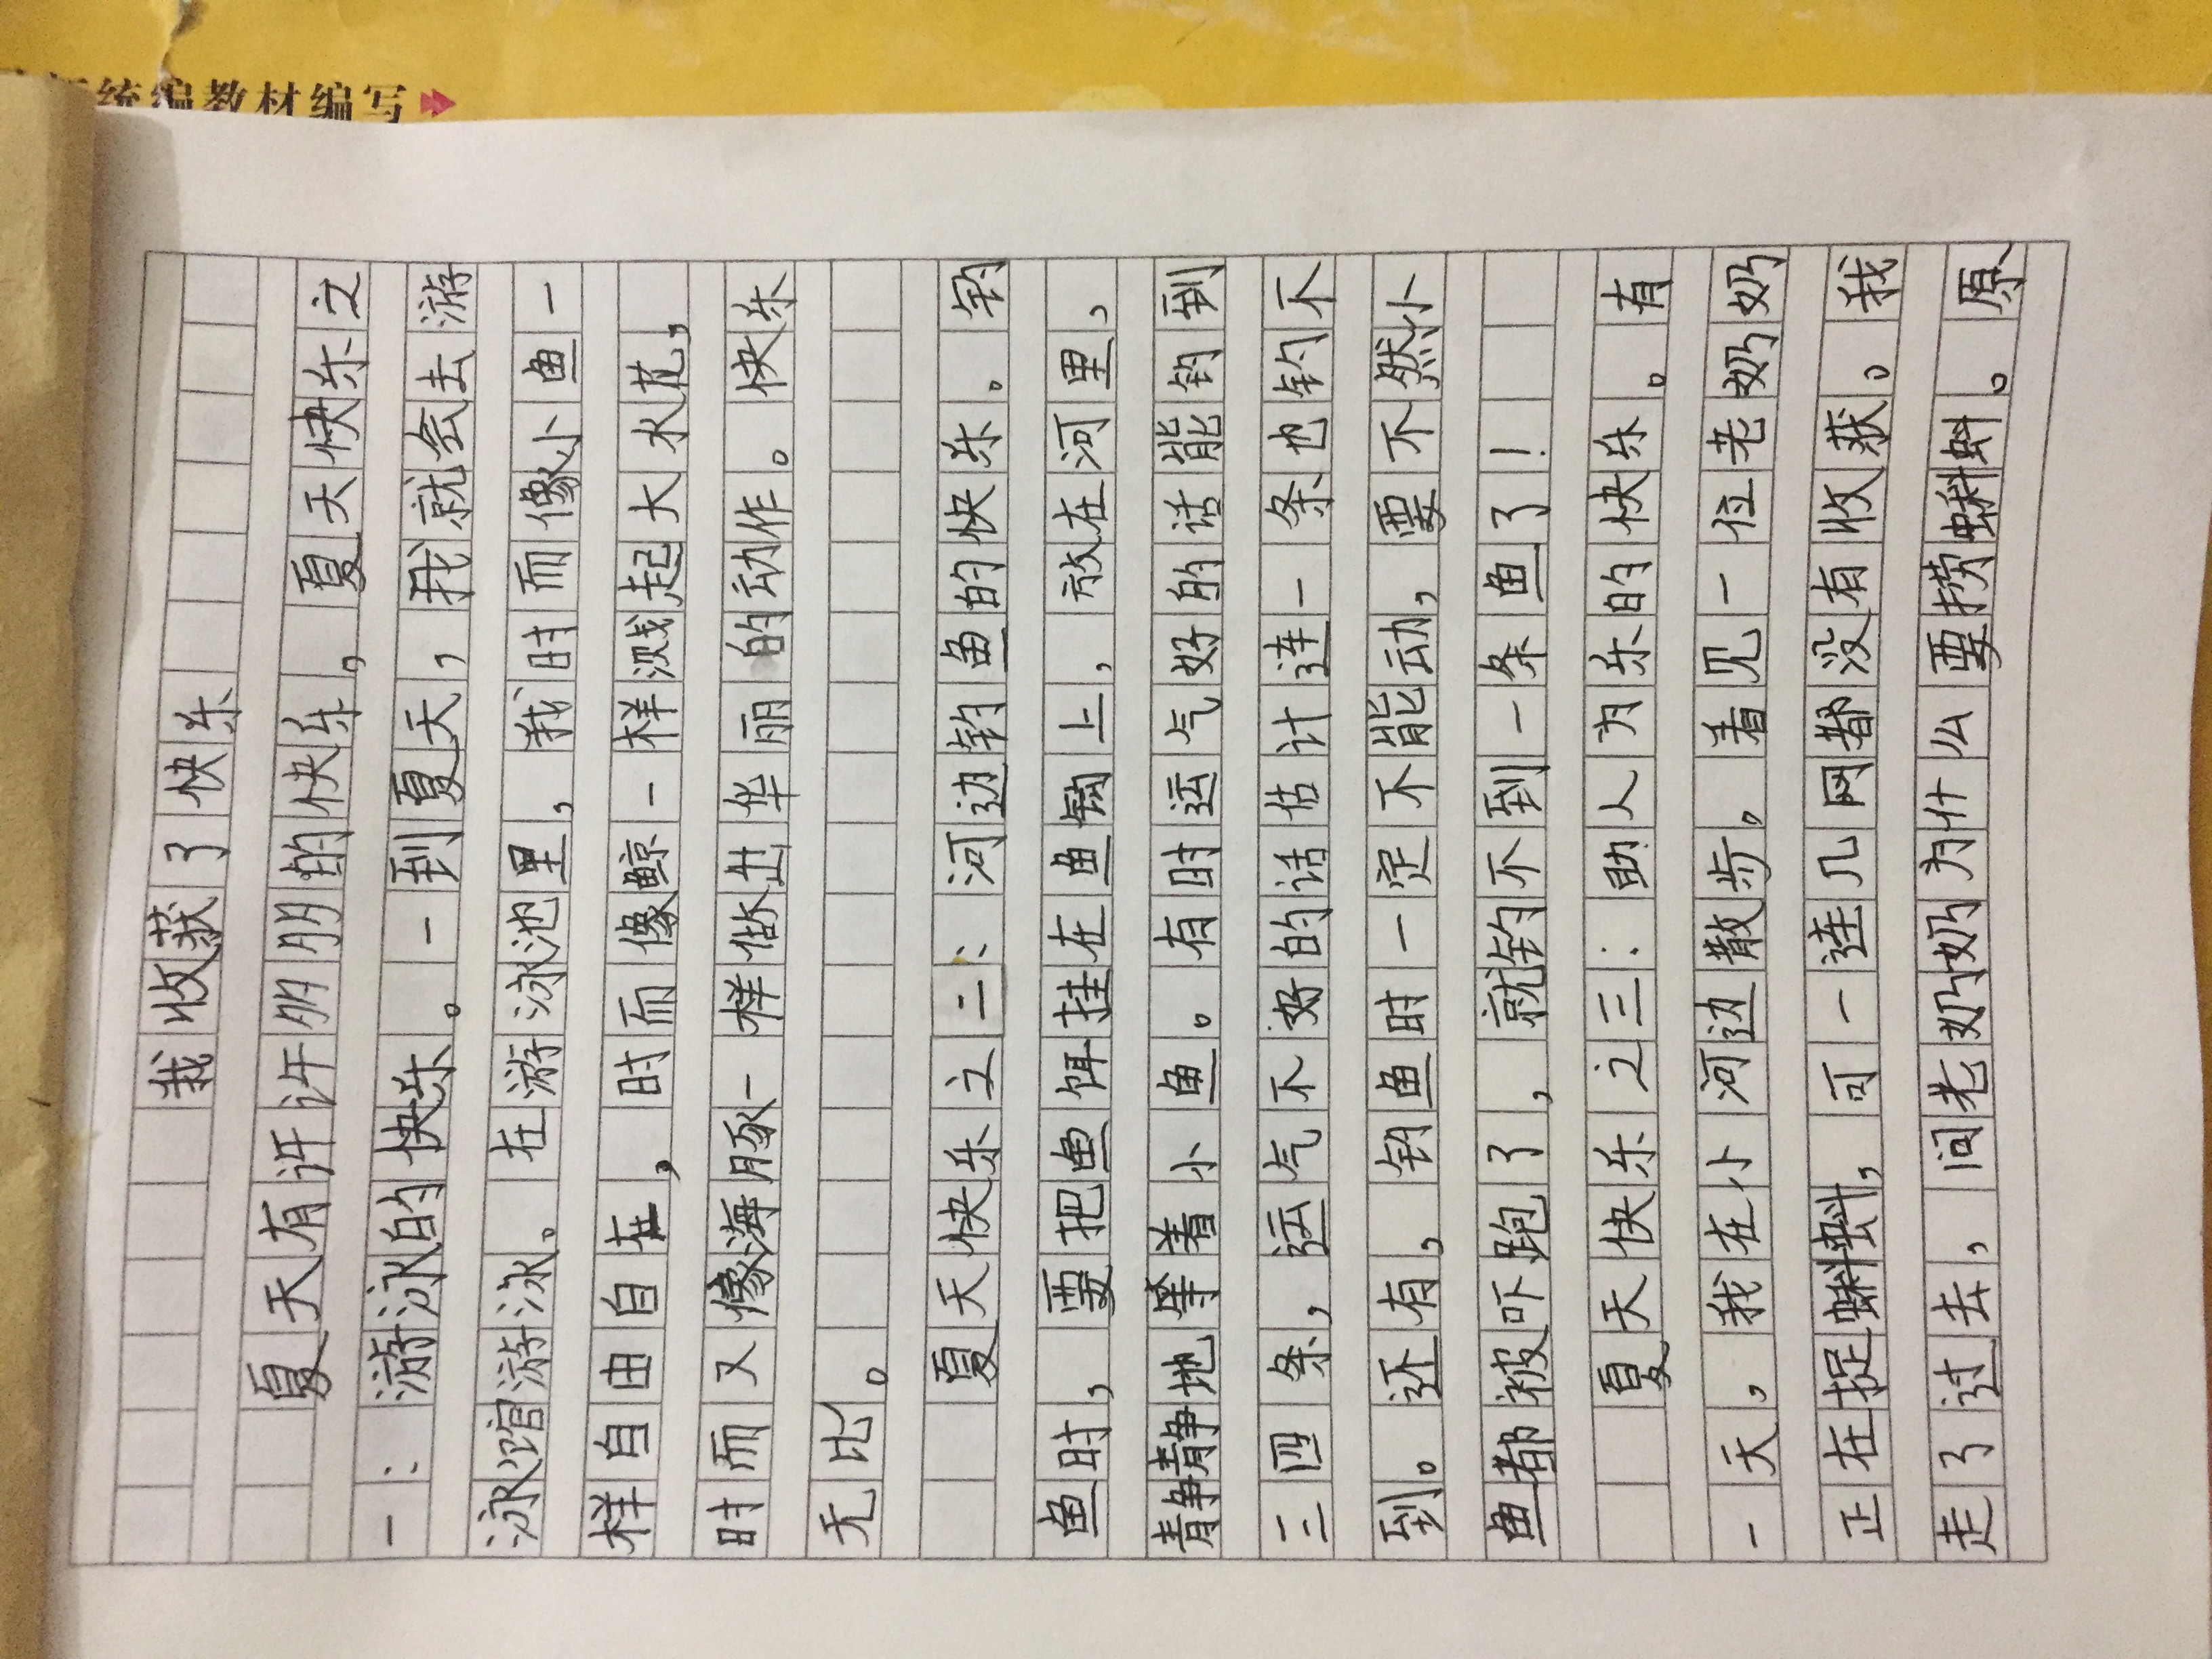 统编教材编写
我收获了快乐
夏天有许许多多的快乐。夏天快乐之
一：游泳的快乐。一到夏天，我就会去游
泳馆游泳。在游泳池里，我时而像小鱼一
样自由自在，时而像鲸一样溅起大水花，
时而又像海豚一样做出华丽的动作。快乐
无比。
夏天快乐之二：河边钓鱼的快乐。钓
鱼时，要把鱼饵挂在鱼钩上，放在河里，
静静地等着小鱼。有时运气好的话能钓到
三四条，运气不好的话估计连一条也钓不
到。还有，钓鱼时一定不能动，要不然小
鱼都被吓跑了，就钓不到一条鱼了！
夏天快乐之三：助人为乐的快乐。有
一天，我在小河边散步。看见一位老奶奶
正在捉蝌蚪，可一连几网都没有收获。我
走了过去，问老奶奶为什么要捞蝌蚪。原